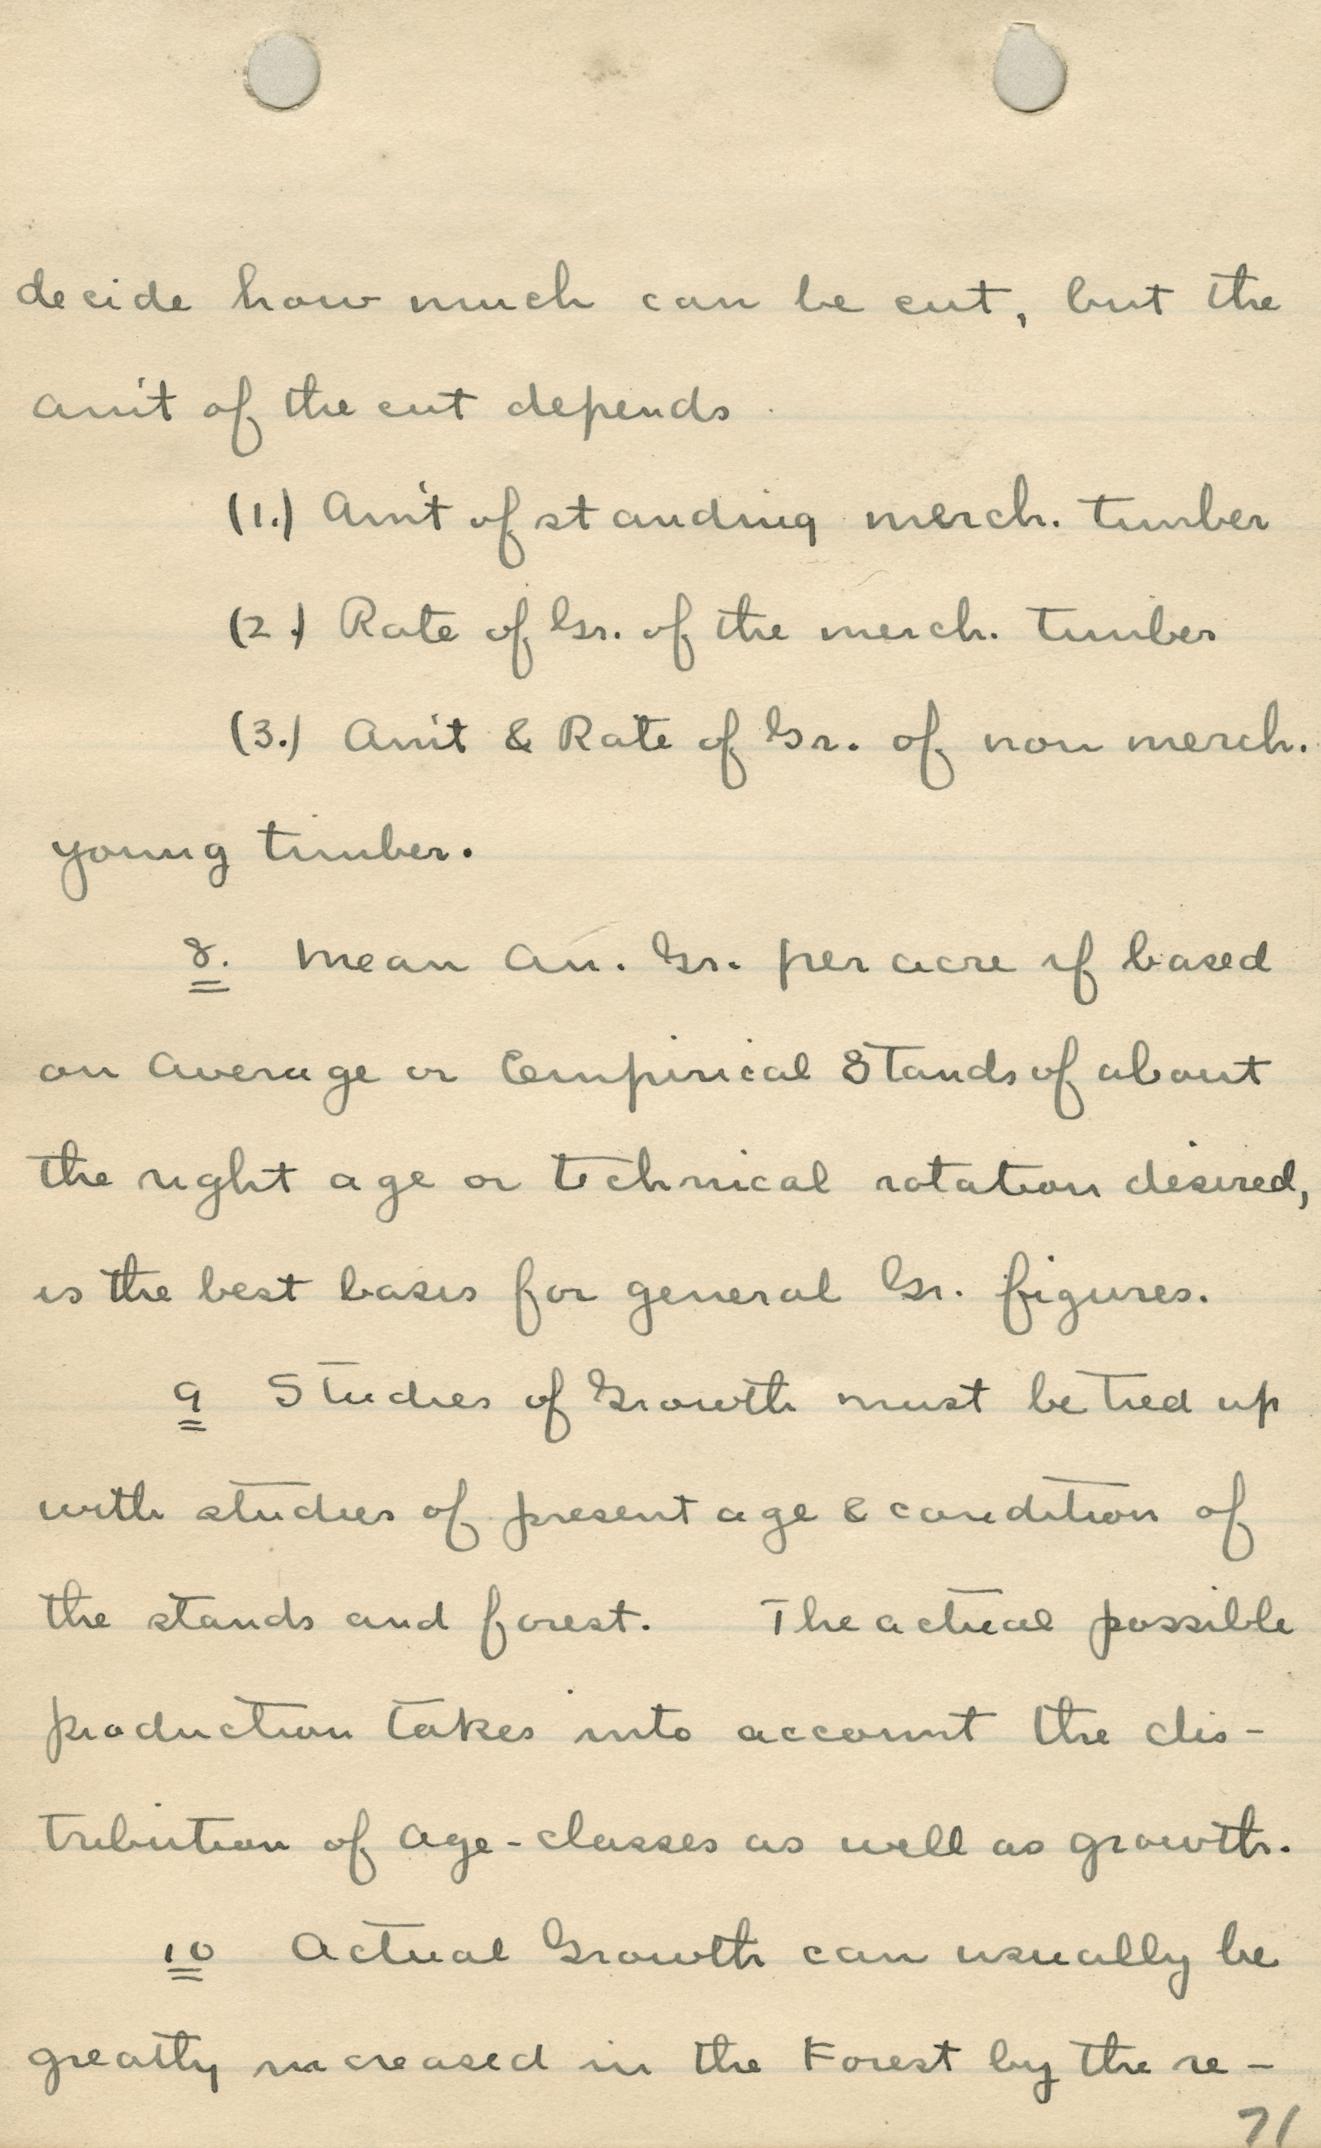 decide how much can be cut, but the
am't of the cut depends
(1.) Am't of standing merch. timber
(2.) Rate of Gr. of the merch. timber
(3.) Am't & Rate of Gr. of non merch.
young timber.
8. Mean An. Gr. per acre if based
on Average or Empirical Stands of about
the right age or technical rotation desired,
is the best basis for general Gr. figures.
9 Studies of Growth must be tied up
with studies of present age & condition of
the stands and forest. The actual possible
production takes into account the dis-
tribution of age-classes as well as growth.
10 Actual Growth can usually be
greatly increased in the Forest by the re-
71